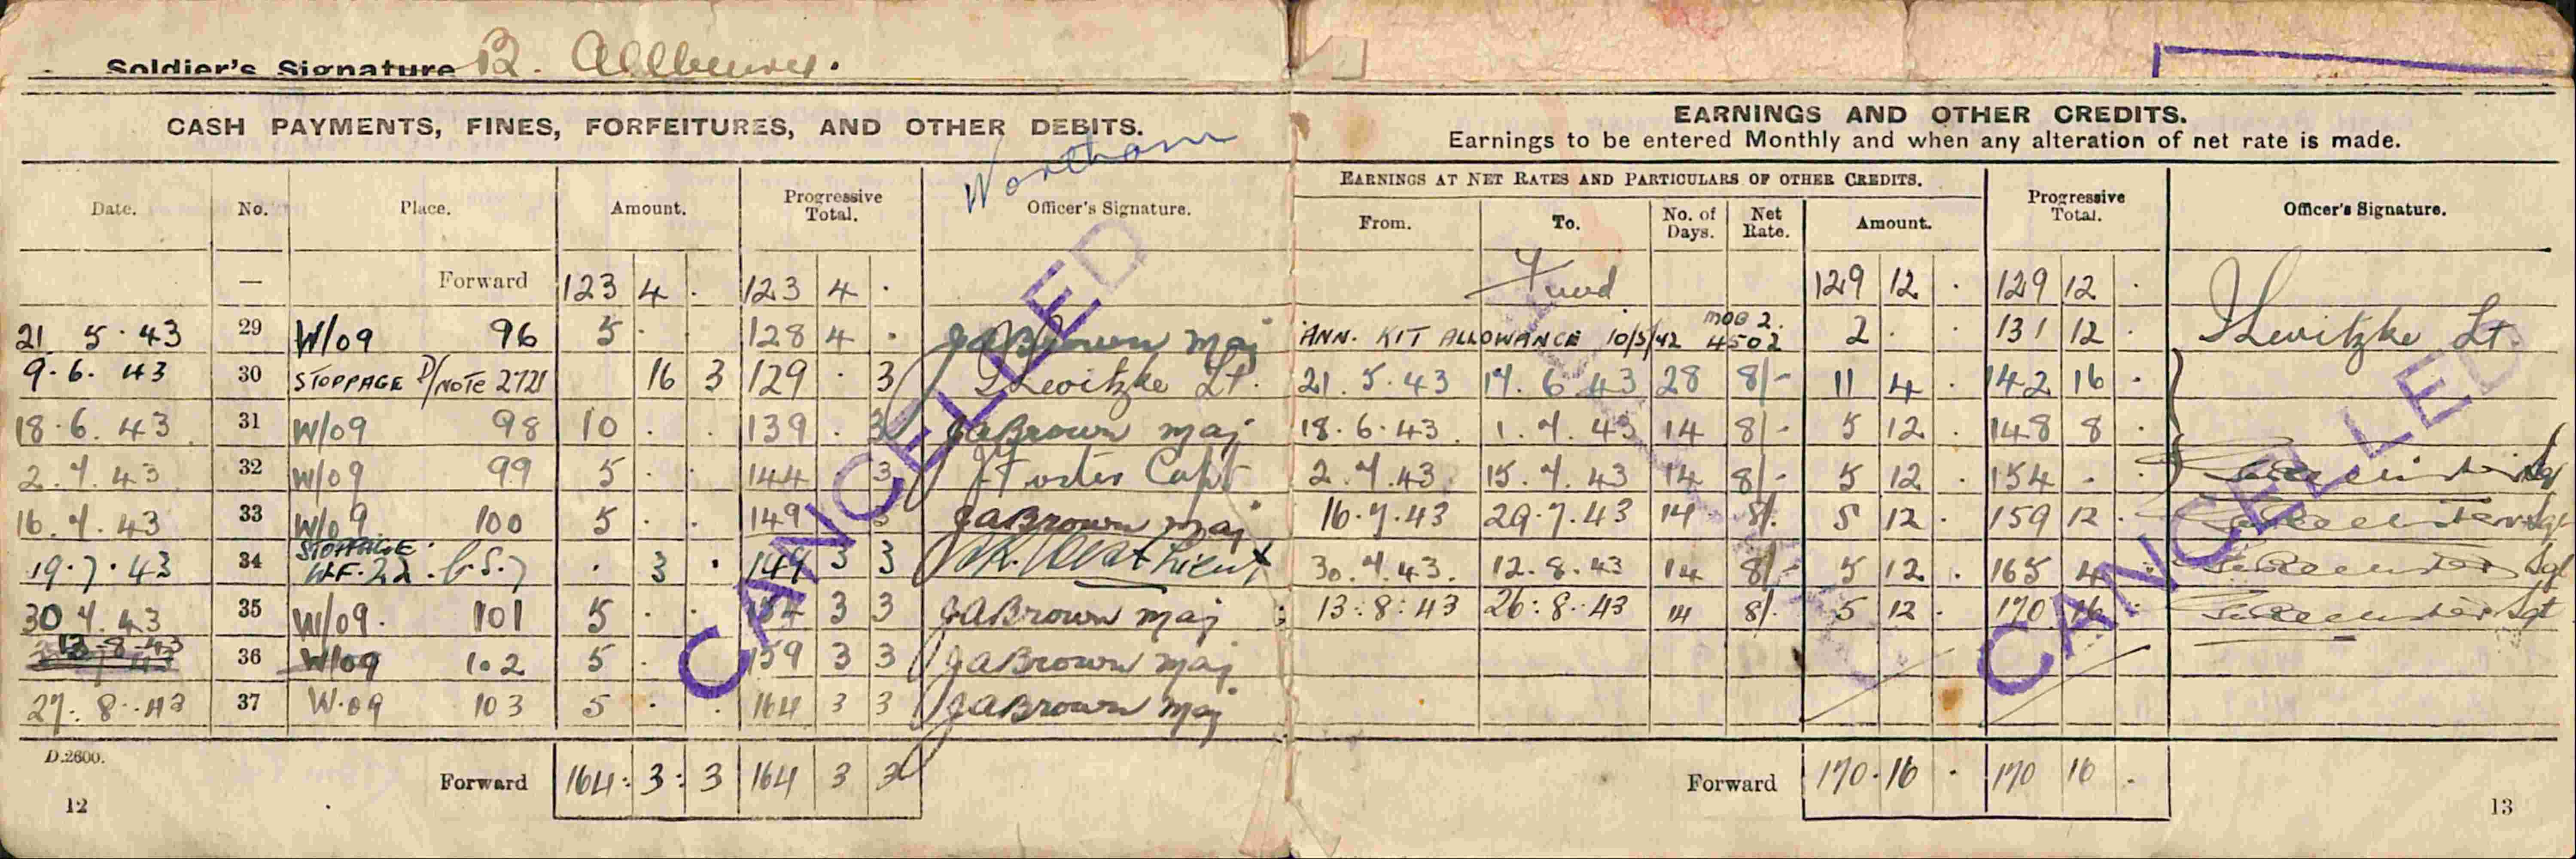 Soldier's Signature B.
CASH PAYMENTS, FINES, FORFEITURES, AND OTHER DEBITS.
Wortham
Date. No. Place. Amount. Progressive Total. Officer's Signature.
— Forward 123 4 · 123 4 ·
21 5 · 43 29 W/09 96 5 · · 128 4 · JABrown Maj
9 · 6 · 43 30 STOPPAGE D/NOTE 2721 16 3 129 · 3 JLewitzke Lt.
18 · 6 · 43 31 W/09 98 10 · · 139 · 3 JABrown Maj
2 . 7 . 43 32 W/09 99 5 · · 144 · 3 Foster Capt
16 . 7 . 43 33 W/09 100 5 · · 149 · 3 JABrown Maj
19 · 7 · 43 34 STOPPAGE W.F. 22 · 3 · 149 3 3 Lieut
30 7 . 43 35 W/09 · 101 5 · · 154 3 3 JABrown Maj
13-8-43 36 W/09 102 5 · 159 3 3 JABrown Maj
27 · 8 · 43 37 W·09 103 5 · · 164 3 3 JABrown Maj
Forward 164 : 3 : 3 164 3 3
D.2600.
12
EARNINGS AND OTHER CREDITS.
Earnings to be entered Monthly and when any alteration of net rate is made.
EARNINGS AT NET RATES AND PARTICULARS OF OTHER CREDITS.
From. To. No. of Days. Net Rate. Amount. Progressive Total. Officer's Signature.
Fwd 129 12 · 129 12 ·
ANN. KIT ALLOWANCE 10/5/42 MOB 2. 4502 2 · · 131 12 · JLewitzke Lt.
21 . 5 · 43 17 . 6 43 28 8/- 11 4 · 142 16 ·
18 · 6 · 43 . 1 . 7 . 43 14 8/- 5 12 · 148 8 ·
2 . 7 . 43 15 . 7 . 43 14 8/- 5 12 · 154 · · Sgt
16 · 7 · 43 29 · 7 · 43 14 8/. 5 12 · 159 12 · Sgt
30 . 7 . 43 . 12 . 8 . 43 14 8/- 5 12 · 165 4 · Sgt
13 : 8 : 43 26 : 8 : 43 14 8/. 5 12 · 170 16 · Sgt
Forward 170 · 16 · 170 16 ·
13
CANCELLED
CANCELLED